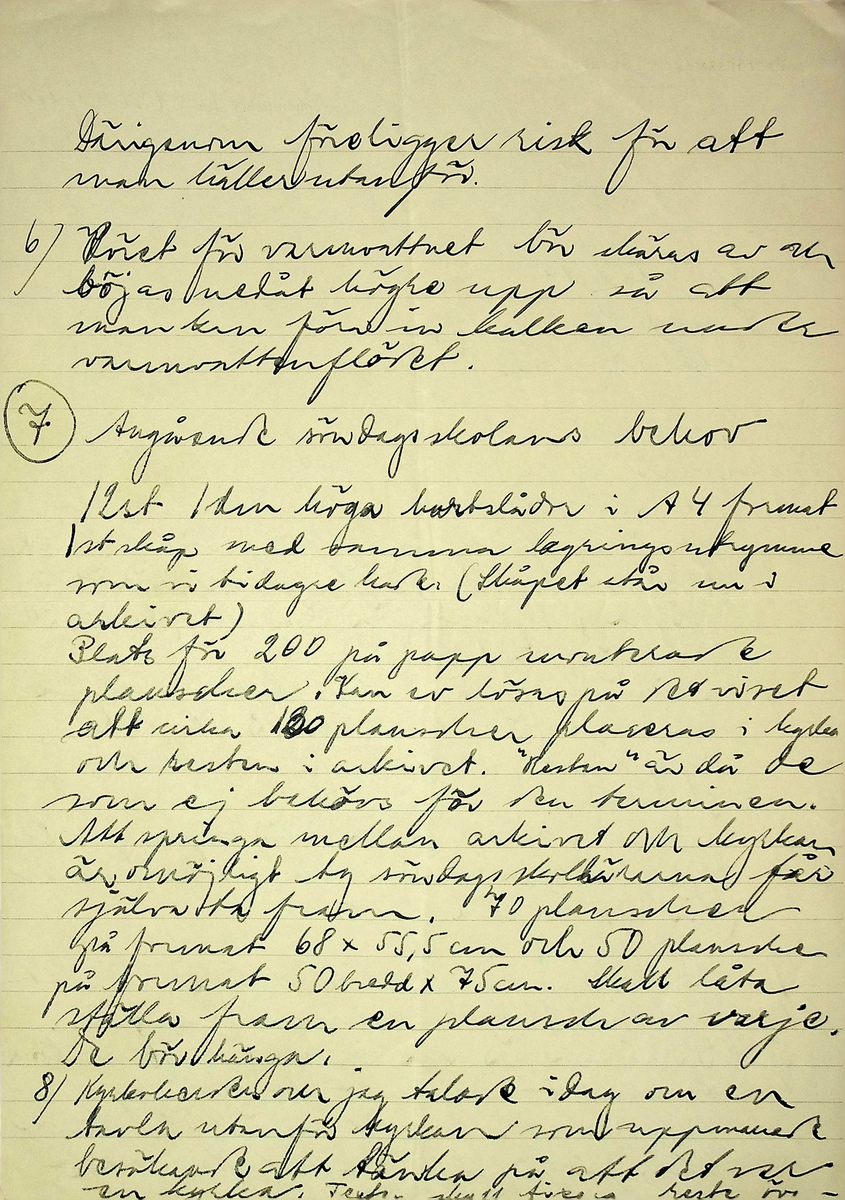 Därigenom föreligger risk för att
man häller utanför.
6) Röret för varmvattnet bör skäras av och
böjas nedåt högre upp så att
man kan föra in kalken under
varmvattenflödet.
7 Angående söndagsskolans behov
12st 1 dm höga kortslådor i A4 format
1st skåp med samma lagringsutrymme
som vi tidagre hade (Skåpet står nu i
arkivet)
Plats för 200 på papp monterade
planscher. Kan ev lösas på det viset
att cirka planscher placeras i kyrkan
och resten i arkivet. "Resten" är då de
som ej behövs för den terminen.
Att springa mellan arkivet och kyrkan
är omöjligt ty söndagsskollärarna får
själva ta fram. 70 planscher
på format 68 x 55,5 cm och 50 planscher
på format 50 bredd x 75 cm. Skall låta
ställa fram en plansch av varje.
De bör hänga.
8) Kyrkoherden och jag talade idag om en
tavla utanför kyrkan som uppmanade
besökande att tänka på att det var
en kyrka. skall